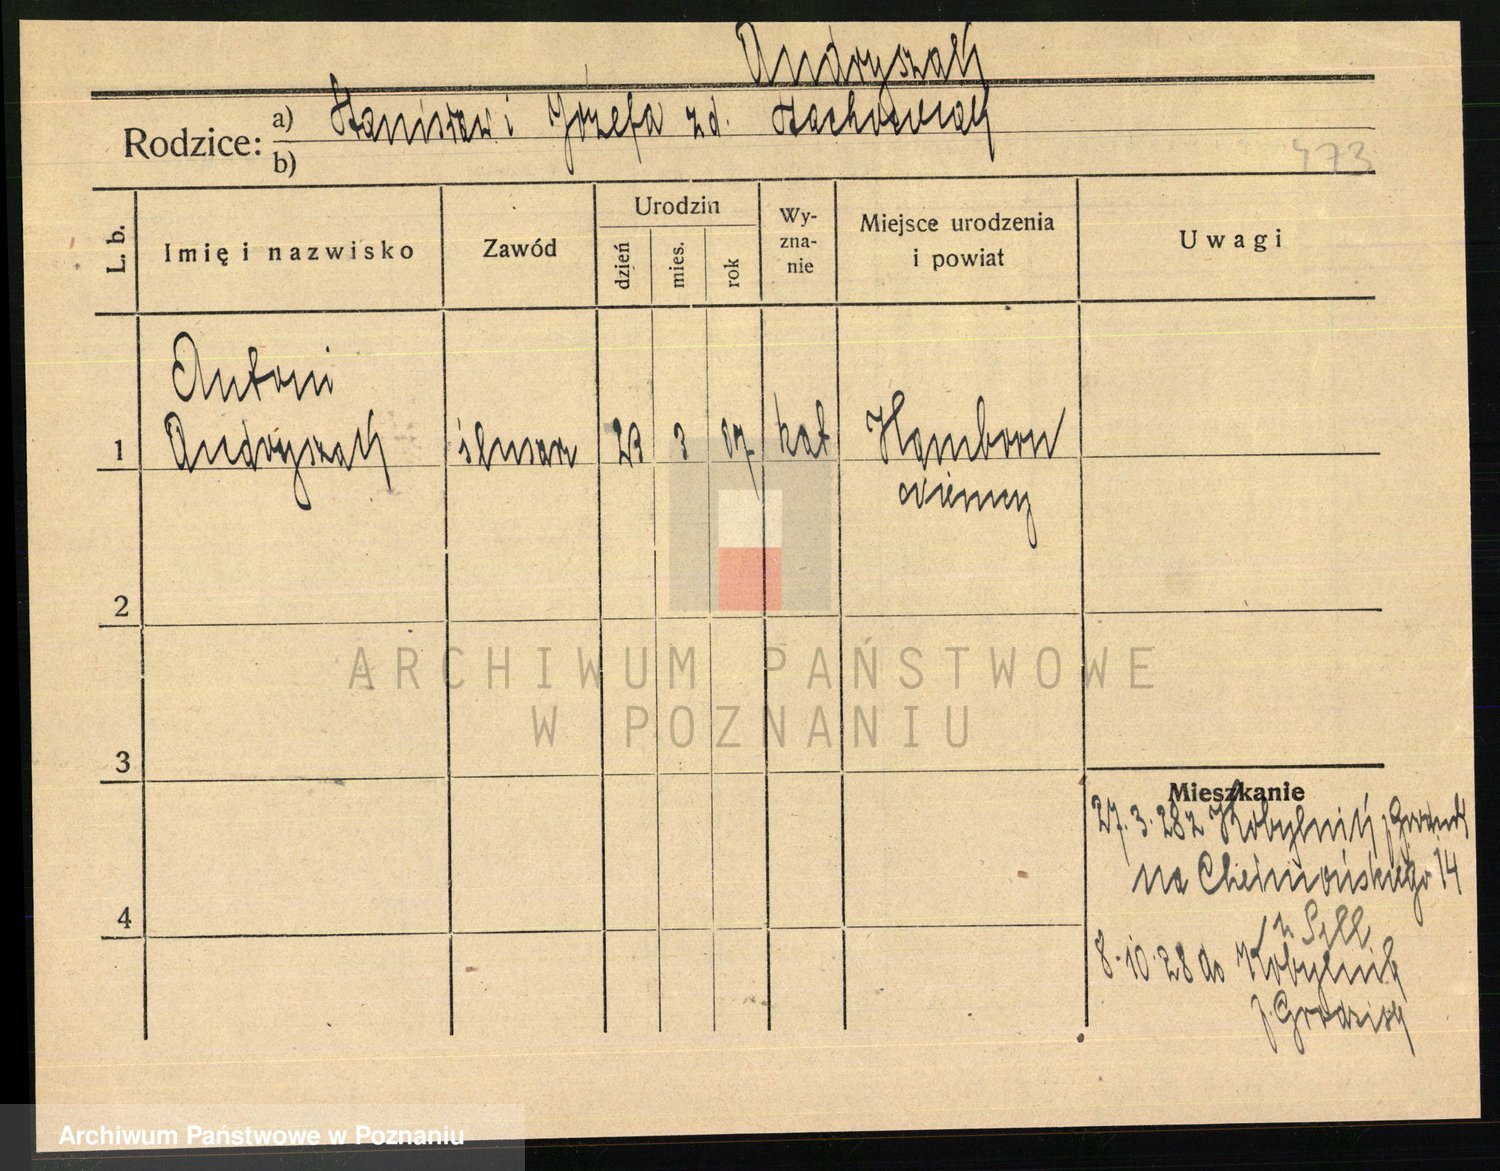 Andryszak
Rodzice: a) Stanisław i Józefa zd. Stachowiak
b)
473
L. b. Imię i nazwisko Zawód Urodzin dzień mies. rok Wy-zna-nie Miejsce urodzenia i powiat Uwagi
Antoni
1 Andryszak ślusarz 23 3 07 kat Hamborn
Niemcy
2
ARCHIWUM PAŃSTWOWE
W POZNANIU
3
Mieszkanie
27.3.28 z Kobylnik
na Chełmońskiego 14
4
8.10.28 do Kobylnik
p. Grodzisk
Archiwum Państwowe w Poznaniu